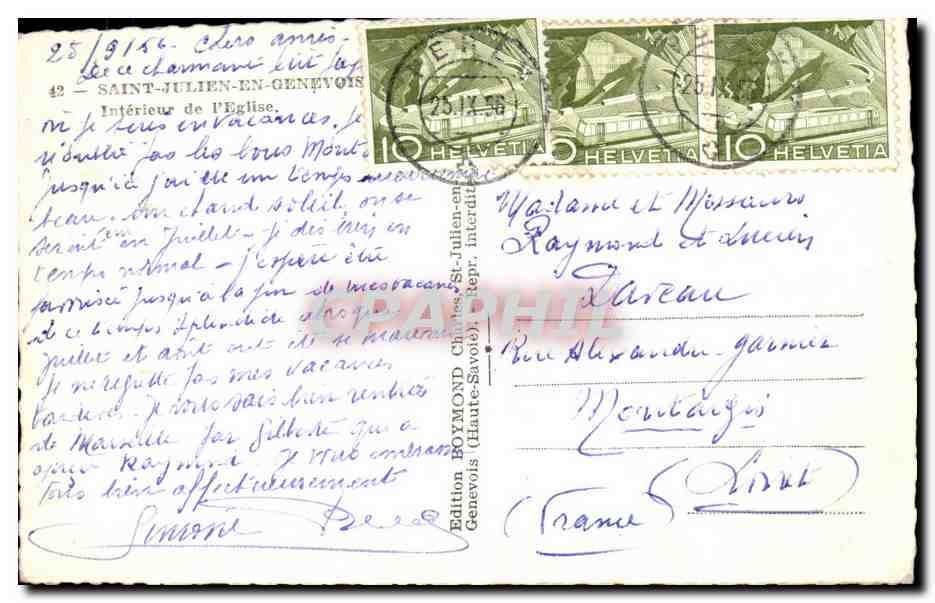 25/9/56 - Chers amis -
De ce charmant
42 - SAINT-JULIEN-EN-GENEVOIS
Intérieur de l'Eglise.
où je suis en vacances. Je
n'oublie pas les bons
jusqu'ici j'ai eu un temps
beau. Un chaud soleil, on se
serait en juillet -
temps normal - J'espère être
jusqu'à la fin de mes vacances
ce temps splendide alors que
juillet et août ont été si mauvais
Je ne regrette pas mes vacances
Je vous sais bien rentrés
de Marseille par Gilberte qui a
Raymond. Je vous embrasse
tous bien affectueusement
Simone
Edition BOYMOND Charles, St-Julien-en-
Genevois (Haute-Savoie). Repr. interdite
10 HELVETIA
HELVETIA
10 HELVETIA
25.IX.56
25.IX.56
Madame et Messieurs
Raymond et Lucien
Rue Alexandre-Garnier
Montargis
(Loiret)
(France)
CPAPHIL